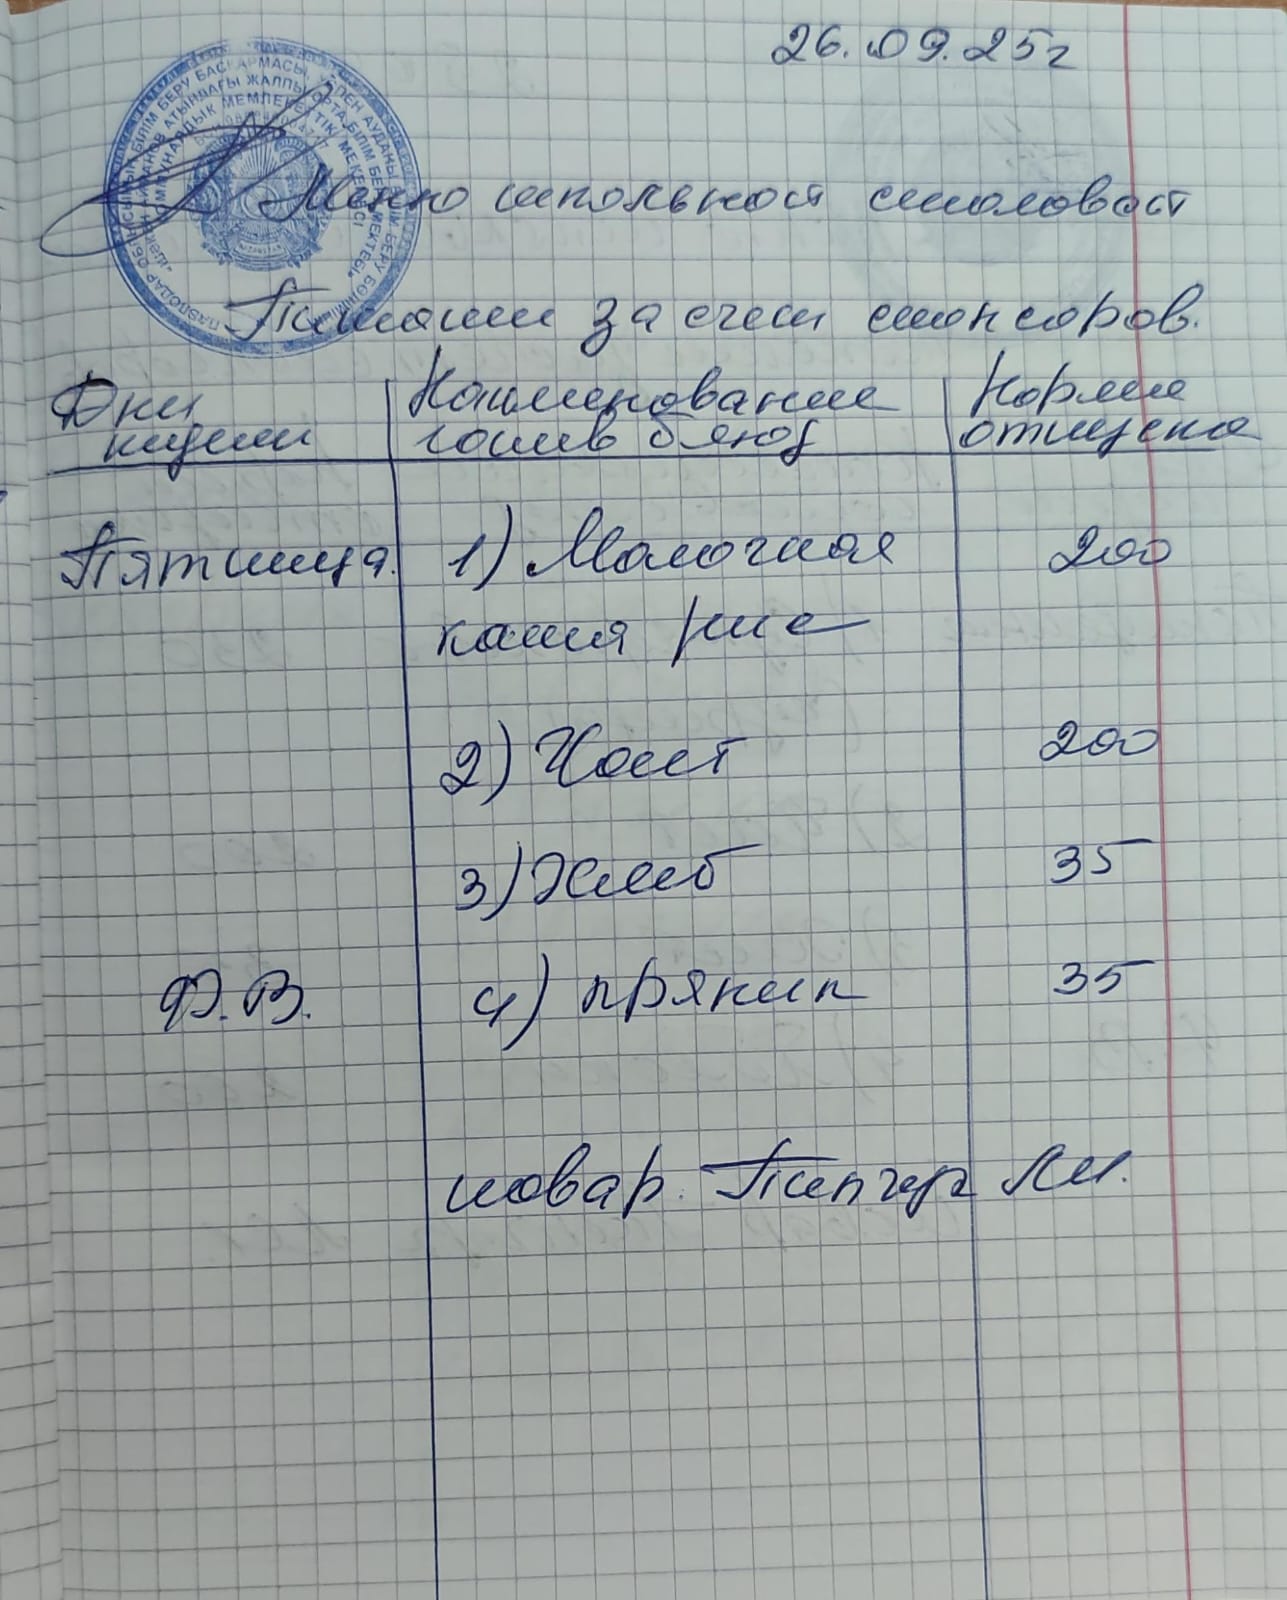 26.09.25г
Меню школьной столовой
Питание за счет спонсоров.
Дни недели
Наименование готов блюд
Норма отпуска
Пятница.
1) Молочная
каша рис
200
2) Чай
200
3) Хлеб
35
Ф.В.
4) пряник
35
повар.